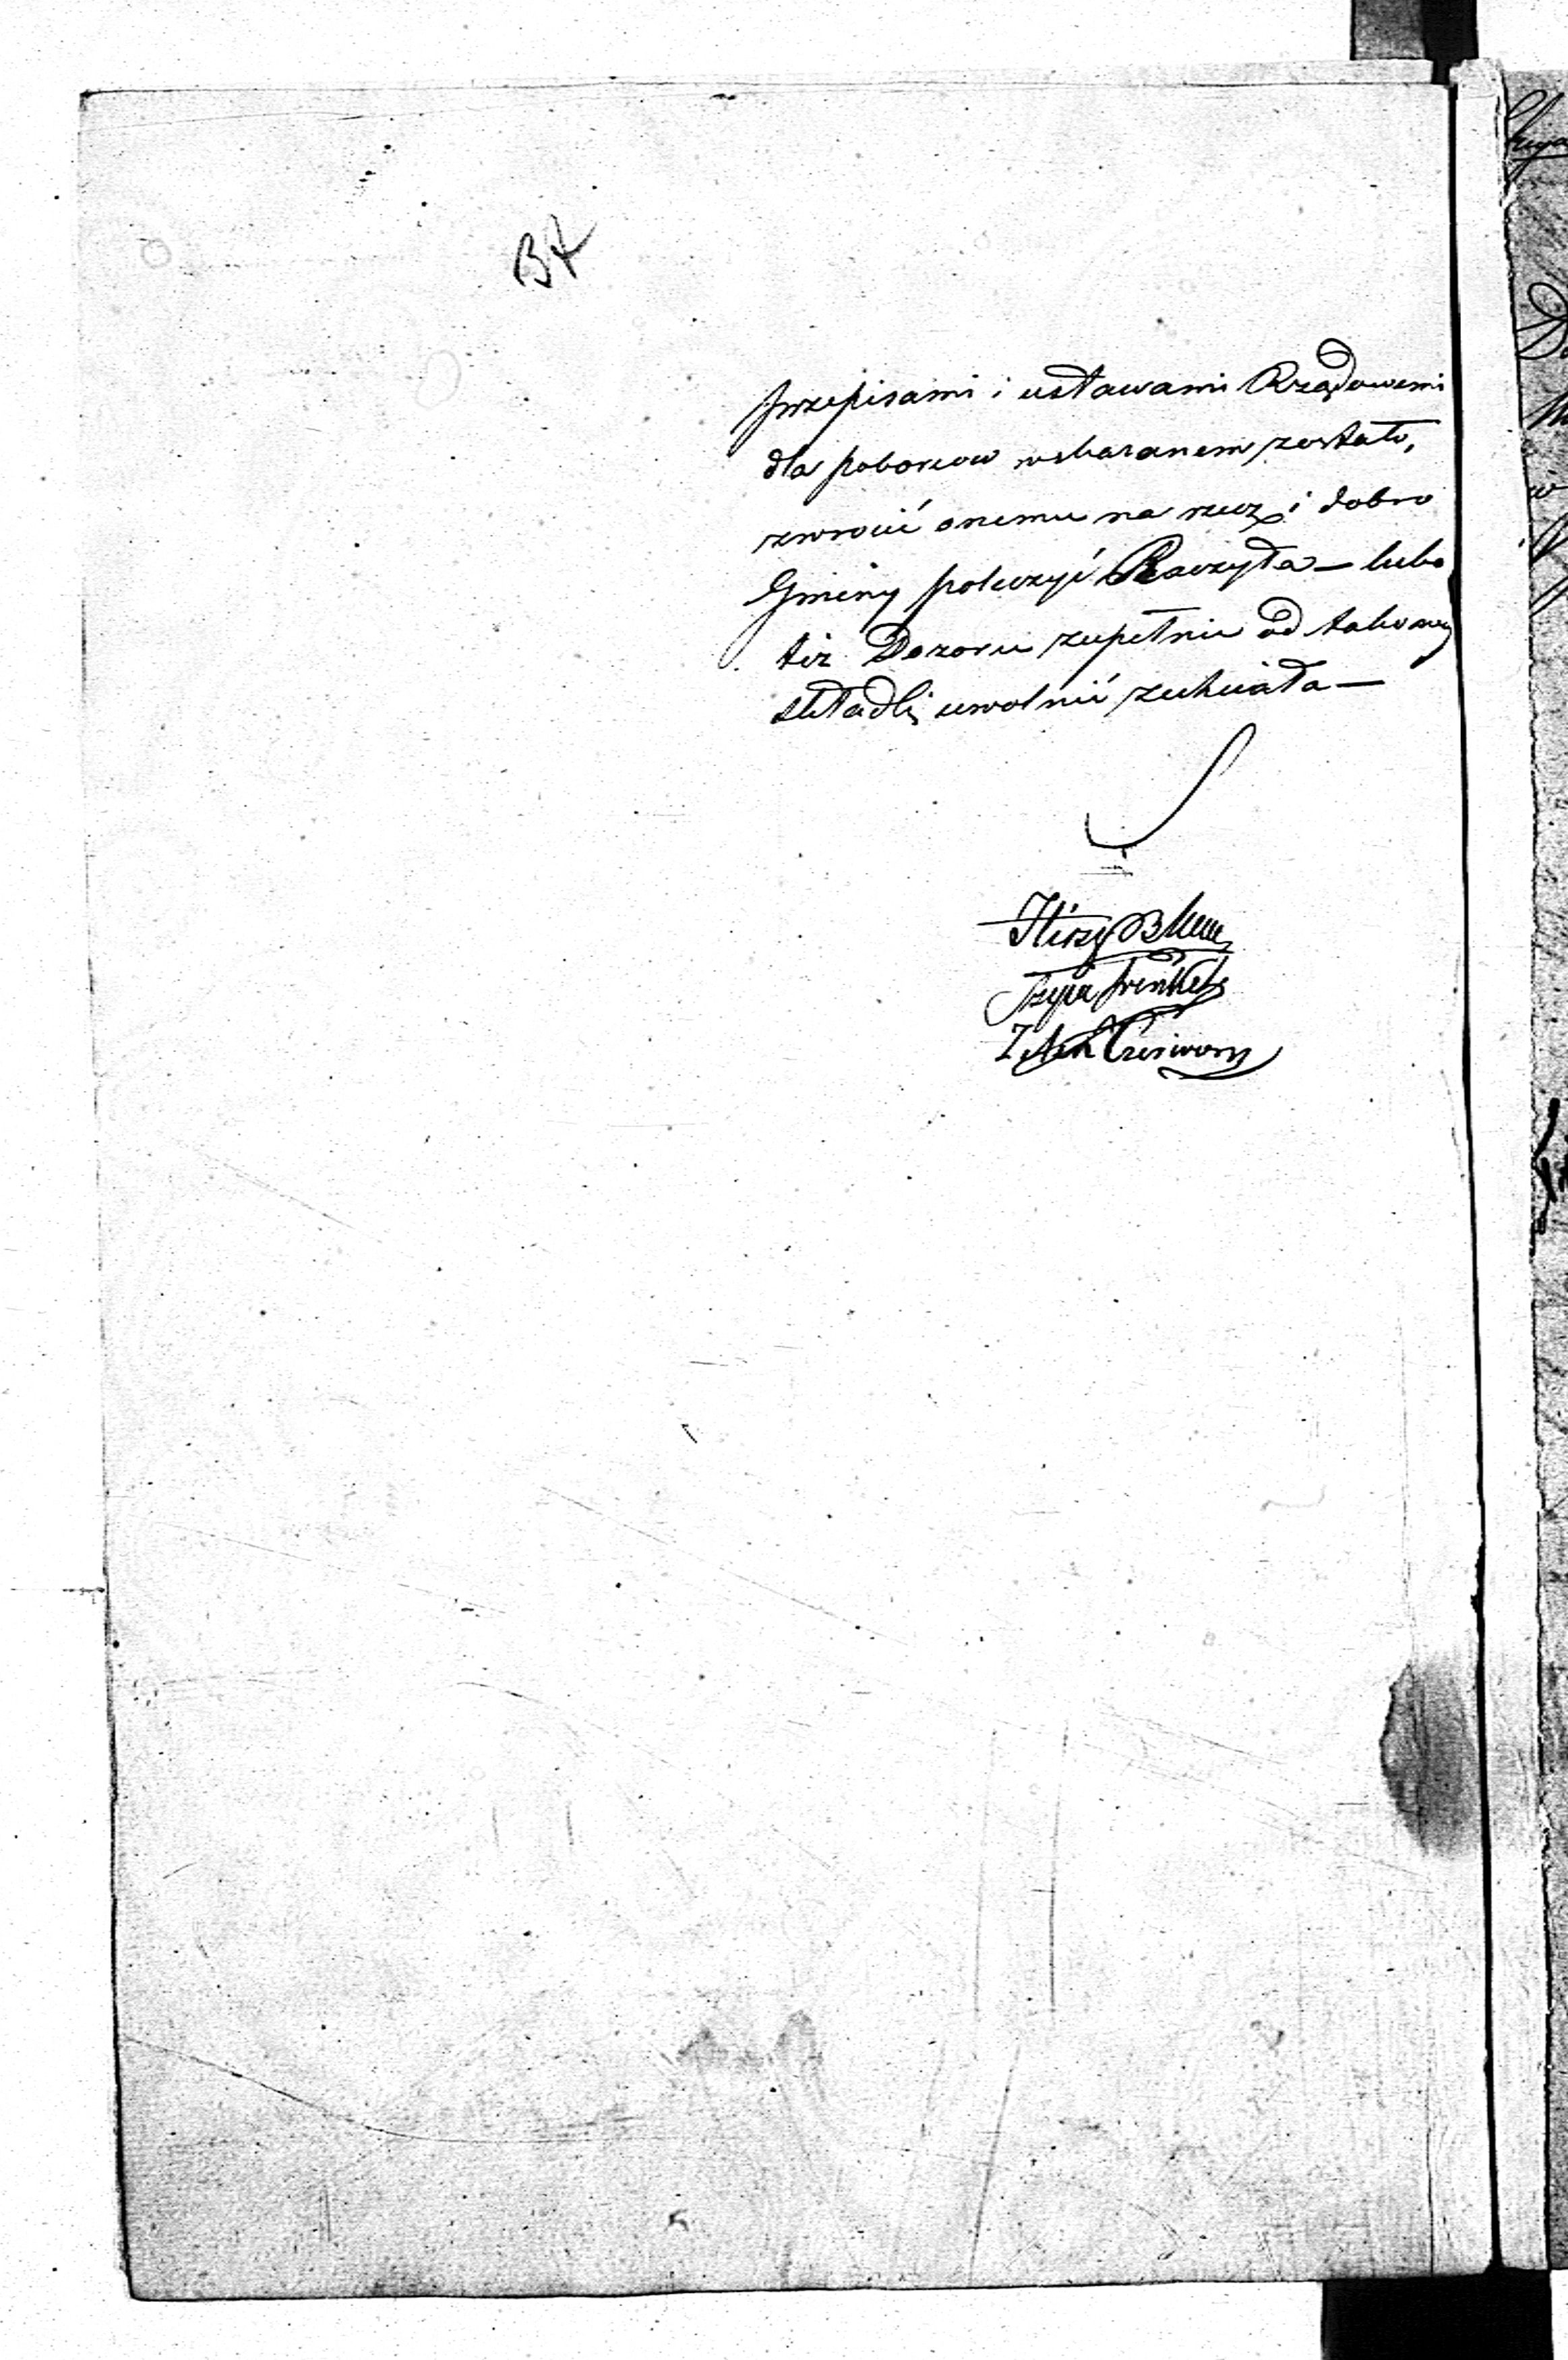 przepisami i ustawami Rządowemi
dla poborcow wskazanem zostało,
zwrocić onemu na rzecz i dobro
Gminy poleczyć Raczyła — lubo
też Dozoru zupełnie od takowey
składki uwolnić zechciała —
Hirsz Blum
Szyia Frenkel